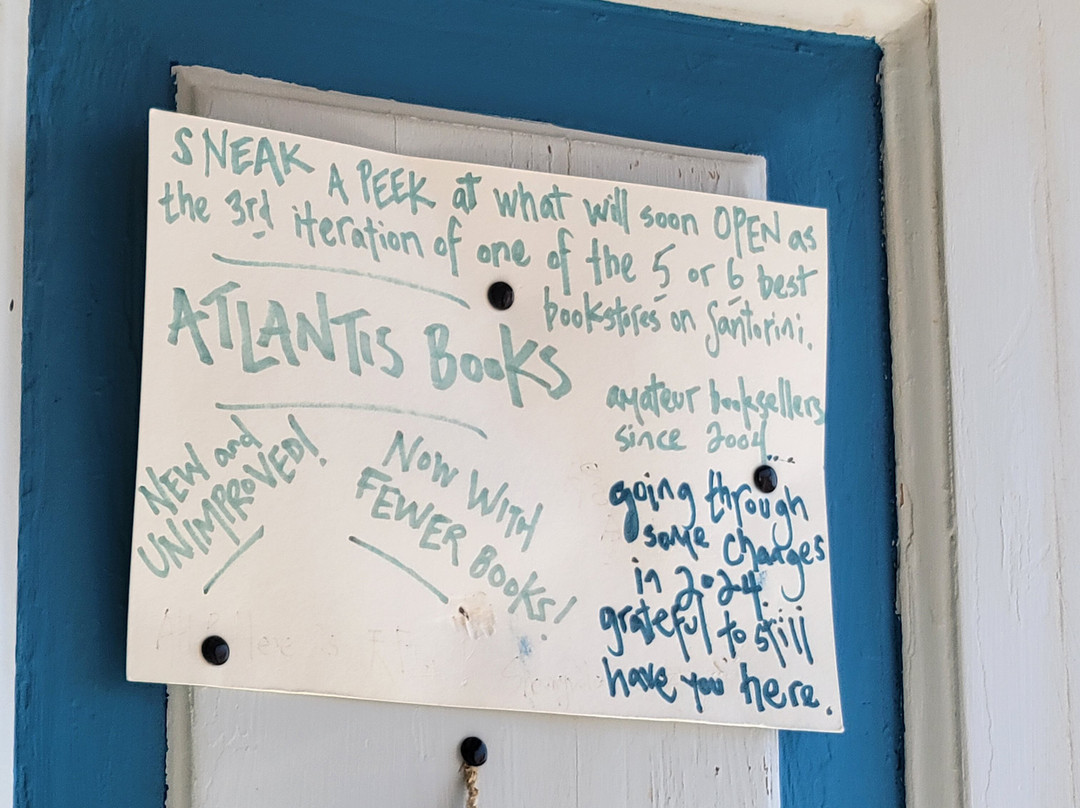 SNEAK A PEEK at what will soon OPEN as
the 3rd iteration of one of the 5 or 6 best
bookstores on Santorini.
ATLANTIS BOOKS
NEW and
UNIMPROVED!
NOW WITH
FEWER BOOKS!
amateur booksellers
since 2004....
going through
some changes
in 2024.
grateful to still
have you here.